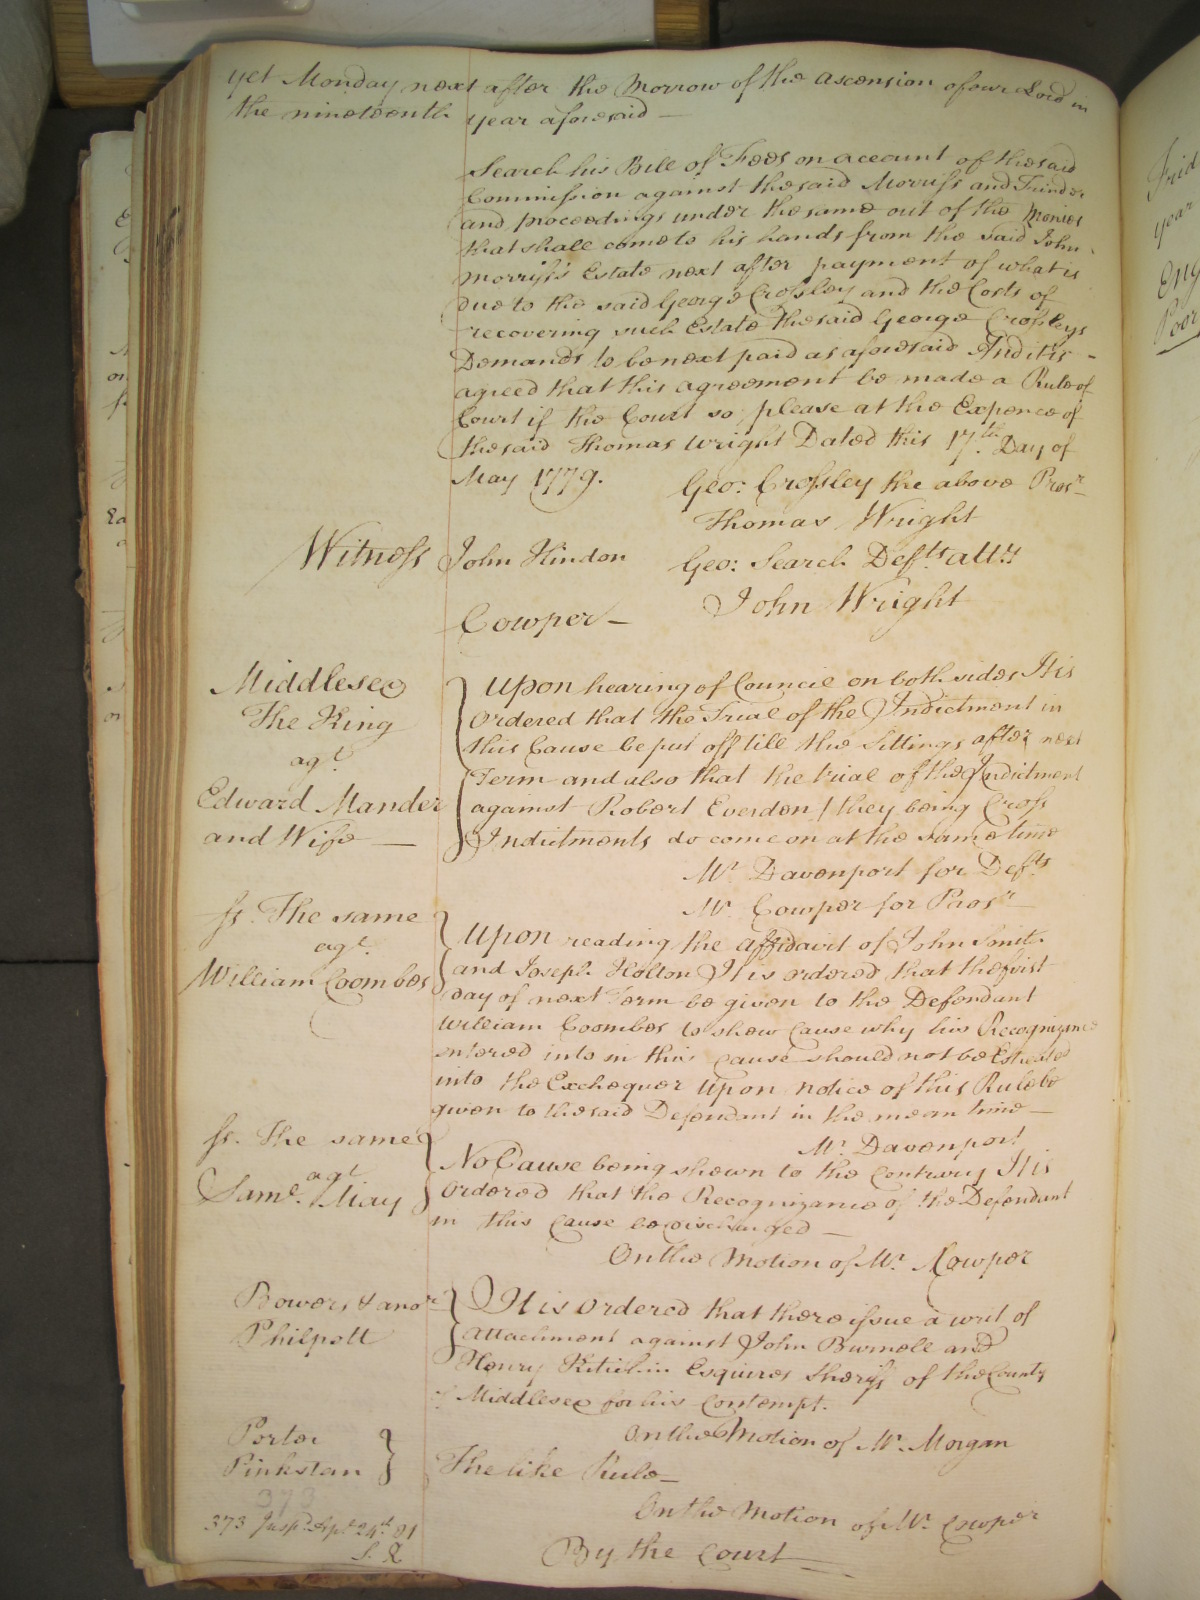 yet Monday next after the Morrow of the Ascension of our Lord in
the nineteenth year aforesaid —
Search his Bill of Fees on account of the said
Commission against the said Morriss and Trinder
and proceedings under the same out of the Monies
that shall come to his hands from the said John
Morriss's Estate next after payment of what is
due to the said George Crossley and the Costs of
recovering such Estate the said George Crossleys
Demands to be next paid as aforesaid And it is -
agreed that this agreement be made a Rule of
Court if the Court so please at the Expence of
the said Thomas Wright Dated this 17th Day of
May 1779.
Geo: Crossley the above Prosr
Thomas Wright
Witness John Hindon
Geo: Search Defts attr
John Wright
Cowper —
Middlesex
The King
agt
Edward Mander
and Wife —
Upon hearing of Council on both sides It is
Ordered that the Trial of the Indictment in
this Cause be put off till the Sittings after next
Term and also that the trial of the Indictment
against Robert Everden / they being Cross
Indictments do come on at the same time
Mr Davenport for Defts
Mr Cowper for Prosr
ss. The same
agt
William Coombes
Upon reading the affidavit of John Smith
and Joseph Holton It is ordered that the first
day of next Term be given to the Defendant
William Coombes to shew Cause why his Recognizance
entered into in this cause should not be Estreated
into the Exchequer Upon notice of this Rule be
given to the said Defendant in the mean time —
Mr Davenport
ss. The same
agt
Saml. May
No Cause being shewn to the contrary It is
Ordered that the Recognizance of the Defendant
in this Cause be discharged —
On the Motion of Mr. Cowper
Bowers & anor
Philpott
It is Ordered that there issue a writ of
Attachment against John Burnell and
Henry Kitchin Esquires Sheriff of the County
of Middlesex for his Contempt.
On the Motion of Mr. Morgan
Porter
Pinkstan
The like Rule —
On the Motion of Mr. Cowper
By the Court
373
373 Insp.d Sept 24th 01